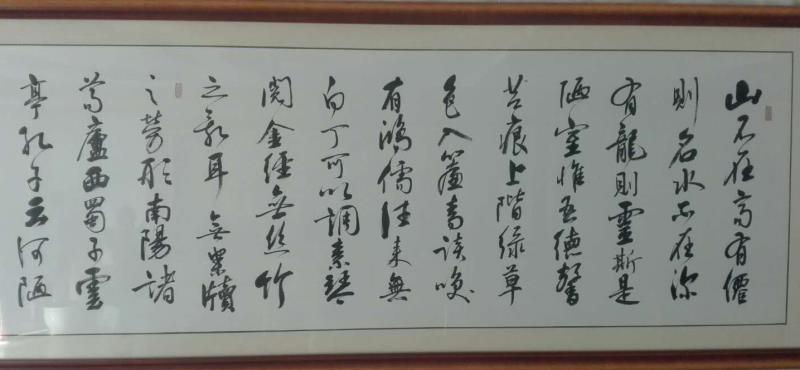 山不在高有僊
則名水不在深
有龍則靈斯是
陋室惟吾德馨
苔痕上階緑草
色入簾青談唉
有鴻儒往来無
白丁可以調素琴
閱金經無丝竹
之亂耳無案牘
之勞形南陽諸
葛廬西蜀子雲
亭孔子云何陋